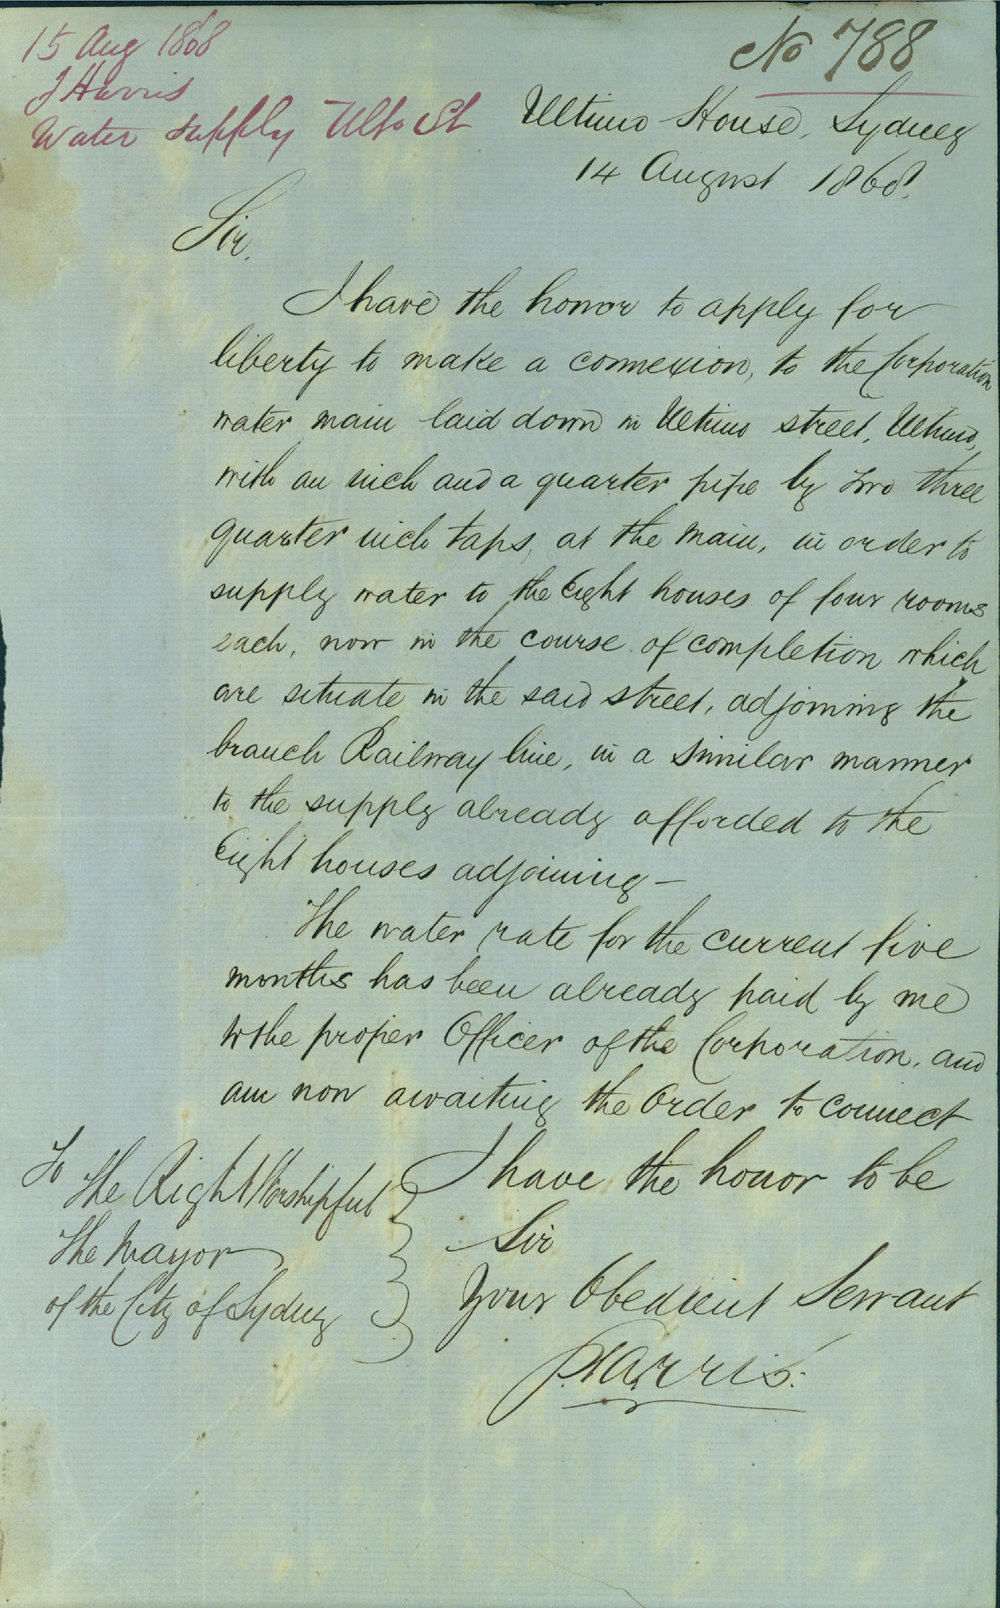 15 Aug 1868
J Harris
Water Supply Ulto St
No 788
Ultimo House, Sydney
14 August 1868.
Sir,
I have the honor to apply for
liberty to make a connexion, to the Corporation
water main laid down in Ultimo street, Ultimo,
with an inch and a quarter pipe by two three
quarter inch taps, at the main, in order to
supply water to the Eight houses of four rooms
each, now in the course of completion which
are situate in the said street, adjoining the
branch Railway line, in a similar manner
to the supply already afforded to the
Eight houses adjoining —
The water rate for the current five
months has been already paid by me
to the proper Officer of the Corporation, and
am now awaiting the Order to connect
I have the honor to be
Sir
Your Obedient Servant
J. Harris.
To
The Right Worshipful
The Mayor
of the City of Sydney